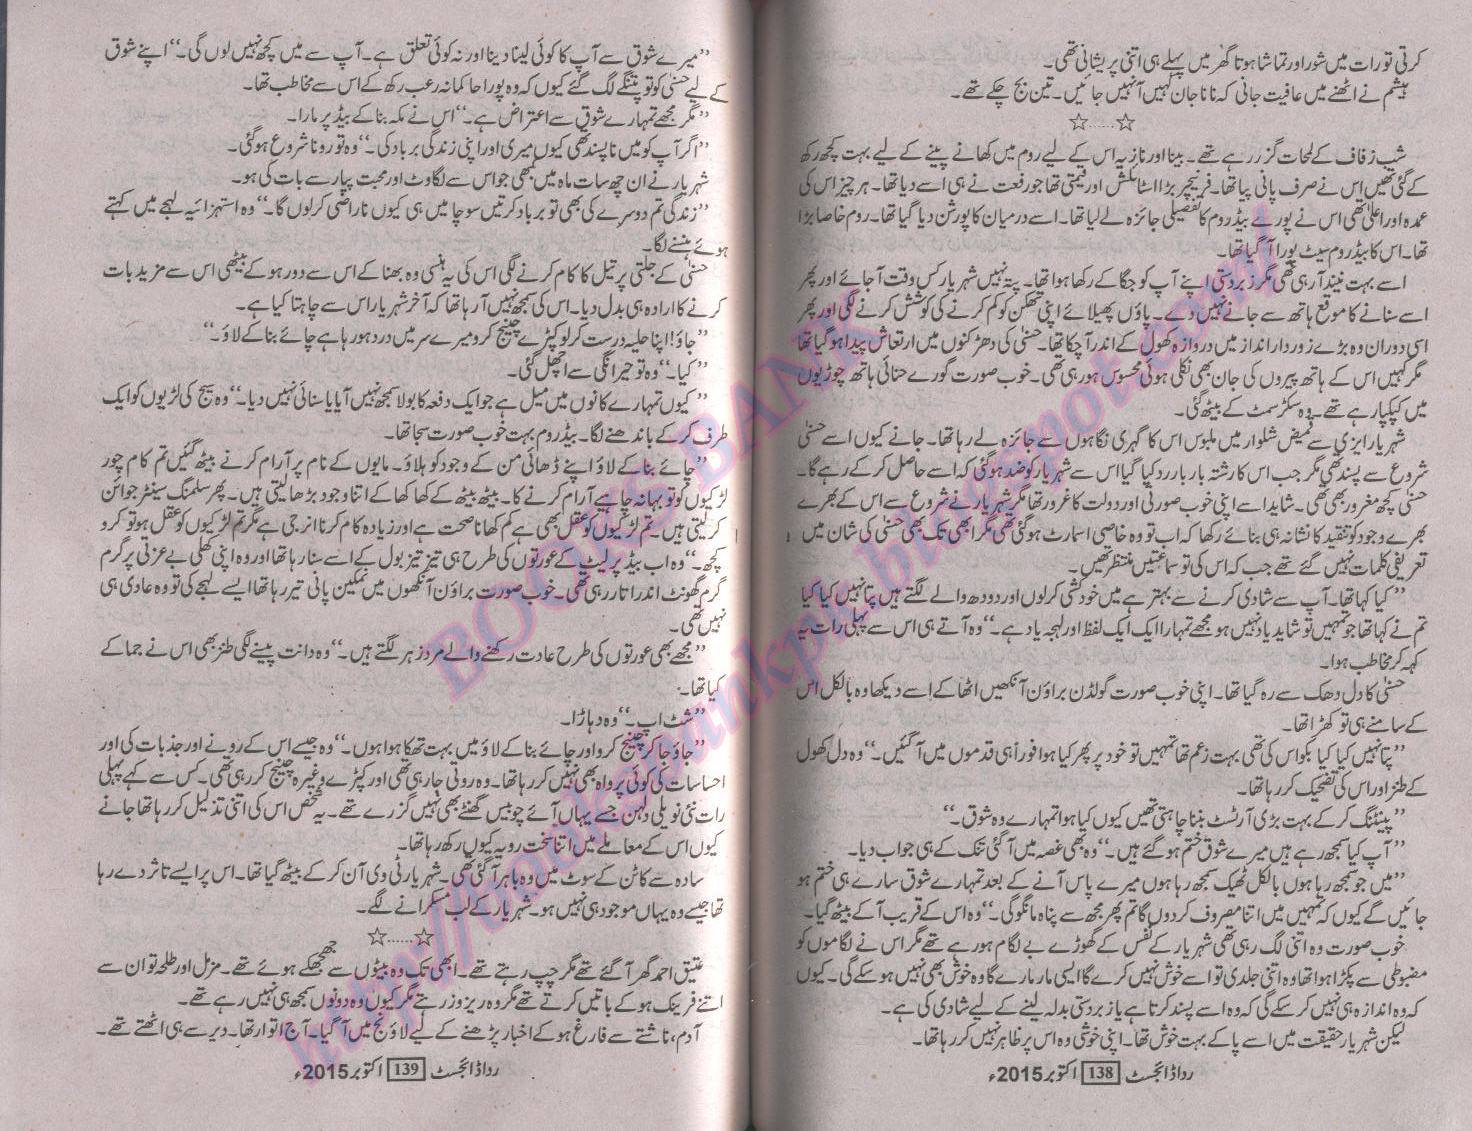 کرتی تو رات میں شور اور تماشا ہوتا گھر میں پہلے ہی اتنی پریشانی تھی۔
ہیشم نے اٹھنے میں عافیت جانی کہ نانا جان کہیں آ نہیں جائیں۔ تین بج چکے تھے۔
☆.....☆
شب زفاف کے لمحات گزر رہے تھے۔ بینا اور نازیہ اس کے لیے روم میں کھانے پینے کے لیے بہت کچھ رکھ
کے گئی تھیں اس نے صرف پانی پیا تھا۔ فرنیچر بڑا اسٹائلش اور قیمتی تھا جو رفعت نے ہی اسے دیا تھا۔ ہر چیز اس کی
عمدہ اور اعلیٰ تھی اس نے پورے بیڈ روم کا تفصیلی جائزہ لے لیا تھا۔ اسے درمیان کا پورشن دیا گیا تھا۔ روم خاصا بڑا
تھا۔ اس کا بیڈ روم سیٹ پورا آ گیا تھا۔
اسے بہت نیند آ رہی تھی مگر زبردستی اپنے آپ کو جگا کے رکھا ہوا تھا۔ پتہ نہیں شہریار کس وقت آ جائے اور پھر
اسے سنانے کا موقع ہاتھ سے جانے نہیں دے۔ پاؤں پھیلائے اپنی تھکن کو کم کرنے کی کوشش کرنے لگی اور پھر
اسی دوران وہ بڑے زوردار انداز میں دروازہ کھول کے اندر آ چکا تھا۔ حسنیٰ کی دھڑکنوں میں ارتعاش پیدا ہو گیا تھا
مگر کہیں اس کے ہاتھ پیروں کی جان بھی نکلی ہوئی محسوس ہو رہی تھی۔ خوب صورت گورے حنائی ہاتھ چوڑیوں
میں کپکپا رہے تھے۔ وہ سکڑ سمٹ کے بیٹھ گئی۔
شہریار ایزی سے قمیض شلوار میں ملبوس اس کا گہری نگاہوں سے جائزہ لے رہا تھا۔ جانے کیوں اسے حسنیٰ
شروع سے پسند تھی مگر جب اس کا رشتہ بار بار رد کیا گیا اس سے شہریار کو ضد ہو گئی کہ اسے حاصل کر کے رہے گا۔
حسنیٰ کچھ مغرور بھی تھی۔ شاید اسے اپنی خوب صورتی اور دولت کا غرور تھا مگر شہریار نے شروع سے اس کے بھرے
بھرے وجود کو تنقید کا نشانہ ہی بنائے رکھا کہ اب تو وہ خاصی اسمارٹ ہو گئی تھی مگر ابھی تک بھی حسنیٰ کی شان میں
تعریفی کلمات نہیں گئے تھے جب کہ اس کی تو سماعتیں منتظر تھیں۔
”کیا کہا تھا۔ آپ سے شادی کرنے سے بہتر ہے میں خودکشی کر لوں اور دودھ والے لگتے ہیں پتا نہیں کیا کیا
تم نے کہا تھا جو تمہیں تو شاید یاد نہیں ہو مجھے تمہارا ایک ایک لفظ اور لہجہ یاد ہے۔“ وہ آتے ہی اس سے پہلی رات یہ
کہہ کر مخاطب ہوا۔
حسنیٰ کا دل دھک سے رہ گیا تھا۔ اپنی خوب صورت گولڈن براؤن آنکھیں اٹھا کے اسے دیکھا وہ بالکل اس
کے سامنے ہی تو کھڑا تھا۔
”پتا نہیں کیا کیا بکواس کی تھی بہت زعم تھا تمہیں تو خود پر پھر کیا ہوا فوراً ہی قدموں میں آ گئیں۔“ وہ دل کھول
کے طنز اور اس کی تضحیک کر رہا تھا۔
”پینٹنگ کر کے بہت بڑی آرٹسٹ بننا چاہتی تھیں کیوں کیا ہوا تمہارے وہ شوق۔“
”آپ کیا سمجھ رہے ہیں میرے شوق ختم ہو گئے ہیں۔“ وہ بھی غصہ میں آ گئی تنک کے ہی جواب دیا۔
”میں جو سمجھ رہا ہوں بالکل ٹھیک سمجھ رہا ہوں میرے پاس آنے کے بعد تمہارے شوق سارے ہی ختم ہو
جائیں گے کیوں کہ تمہیں میں اتنا مصروف کر دوں گا تم پھر مجھ سے پناہ مانگو گی۔“ وہ اس کے قریب آ کے بیٹھ گیا۔
خوب صورت وہ اتنی لگ رہی تھی شہریار کے نفس کے گھوڑے بے لگام ہو رہے تھے مگر اس نے لگاموں کو
مضبوطی سے پکڑا ہوا تھا وہ اتنی جلدی تو اسے خوش نہیں کرے گا ایسی مار مارے گا وہ خوش بھی نہیں ہو سکے گی۔ کیوں
کہ وہ اندازہ ہی نہیں کر سکے گی کہ وہ اسے پسند کرتا ہے یا زبردستی بدلہ لینے کے لیے شادی کی ہے۔
لیکن شہریار حقیقت میں اسے پا کے بہت خوش تھا۔ اپنی خوشی وہ اس پر ظاہر نہیں کر رہا تھا۔
ردا ڈائجسٹ 138 اکتوبر 2015ء
”میرے شوق سے آپ کا کوئی لینا دینا اور نہ کوئی تعلق ہے۔ آپ سے میں کچھ نہیں لوں گی۔“ اپنے شوق
کے لیے حسنیٰ کو تو پتنگے لگ گئے کیوں کہ وہ پورا حاکمانہ رعب رکھ کے اس سے مخاطب تھا۔
”مگر مجھے تمہارے شوق سے اعتراض ہے۔“ اس نے مکہ بنا کے بیڈ پر مارا۔
”اگر آپ کو میں ناپسند تھی کیوں میری اور اپنی زندگی برباد کی۔“ وہ تو رونا شروع ہو گئی۔
شہریار نے ان چھ سات ماہ میں بھی جو اس سے لگاوٹ اور محبت پیار سے بات کی ہو۔
”زندگی تم دوسرے کی بھی تو برباد کرتیں سوچا میں ہی کیوں نا راضی کر لوں گا۔“ وہ استہزائیہ لہجے میں کہتے
ہوئے ہنسنے لگا۔
حسنیٰ کے جلتی پر تیل کا کام کرنے لگی اس کی یہ ہنسی وہ بھنا کے اس سے دور ہو کے بیٹھی اس سے مزید بات
کرنے کا ارادہ ہی بدل دیا۔ اس کی سمجھ نہیں آ رہا تھا کہ آخر شہریار اس سے چاہتا کیا ہے۔
”جاؤ! اپنا حلیہ درست کر لو کپڑے چینج کرو میرے سر میں درد ہو رہا ہے چائے بنا کے لاؤ۔“
”کیا۔“ وہ تو حیرانگی سے اچھل گئی۔
”کیوں تمہارے کانوں میں میل ہے جو ایک دفعہ کا بولا سمجھ نہیں آیا یا سنائی نہیں دیا۔“ وہ سیج کی لڑیوں کو ایک
طرف کر کے باندھنے لگا۔ بیڈ روم بہت خوب صورت سجا تھا۔
”چائے بنا کے لاؤ اپنے ڈھائی من کے وجود کو ہلاؤ۔ مایوں کے نام پر آرام کرنے بیٹھ گئیں تم کام چور
لڑکیوں کو تو بہانہ چاہیے آرام کرنے کا۔ بیٹھ بیٹھ کے کھا کھا کے اتنا وجود بڑھا لیتی ہیں۔ پھر سلمنگ سینٹر جوائن
کر لیتی ہیں۔ تم لڑکیوں کو عقل بھی ہے کم کھانا صحت ہے اور زیادہ کام کرنا انرجی ہے مگر تم لڑکیوں کو عقل ہو تو کرو
کچھ۔“ وہ اب بیڈ پر لیٹ کے عورتوں کی طرح ہی تیز تیز بول کے اسے سنا رہا تھا اور وہ اپنی کھلی بے عزتی پر گرم
گرم گھونٹ اندر اتار رہی تھی۔ خوب صورت براؤن آنکھوں میں نمکین پانی تیر رہا تھا ایسے لہجے کی تو وہ عادی ہی
نہیں تھی۔
”مجھے بھی عورتوں کی طرح عادت رکھنے والے مرد زہر لگتے ہیں۔“ وہ دانت پیسنے لگی طنز بھی اس نے جما کے
کیا تھا۔
”شٹ اپ۔“ وہ دہاڑا۔
”جاؤ جا کر چینج کرو اور چائے بنا کے لاؤ میں بہت تھکا ہوا ہوں۔“ وہ جیسے اس کے رونے اور جذبات کی اور
احساسات کی کوئی پرواہ بھی نہیں کر رہا تھا۔ وہ روتی جا رہی تھی اور کپڑے وغیرہ چینج کر رہی تھی۔ کس سے کہے پہلی
رات نئی نویلی دلہن جسے یہاں آئے چوبیس گھنٹے بھی نہیں گزرے تھے۔ یہ شخص اس کی اتنی تذلیل کر رہا تھا جانے
کیوں اس کے معاملے میں اتنا سخت رویہ کیوں رکھ رہا تھا۔
سادہ سے کاٹن کے سوٹ میں وہ باہر آ گئی تھی۔ شہریار ٹی وی آن کر کے بیٹھ گیا تھا۔ اس پر ایسے تاثر دے رہا
تھا جیسے وہ یہاں موجود ہی نہیں ہو۔ شہریار کے لب مسکرانے لگے۔
☆.....☆
عتیق احمد گھر آ گئے تھے مگر چپ رہتے تھے۔ ابھی تک وہ بیٹوں سے جھجھکے ہوئے تھے۔ مزمل اور طلحہ تو ان سے
اتنے فرینک ہو کے باتیں کرتے تھے مگر وہ ریزرو رہتے مگر کیوں وہ دونوں سمجھ ہی نہیں رہے تھے۔
آدم، ناشتے سے فارغ ہو کے اخبار پڑھنے کے لیے لاؤنج میں آ گیا۔ آج اتوار تھا۔ دیر سے ہی اٹھتے تھے۔
ردا ڈائجسٹ 139 اکتوبر 2015ء
BOOKS BANK
http://booksbankpk.blogspot.com/